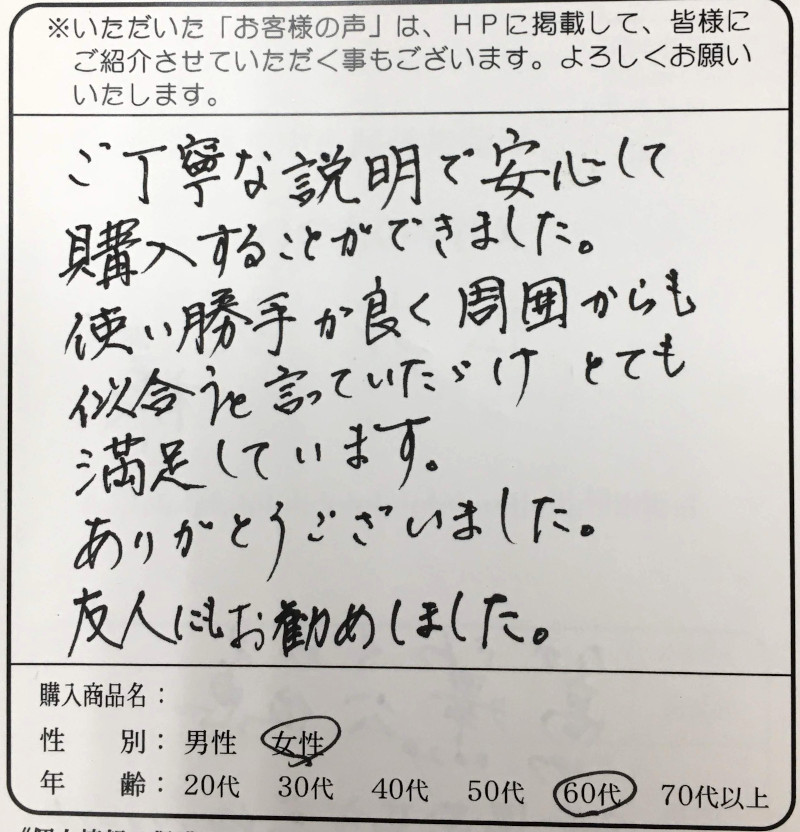 ※いただいた「お客様の声」は、HPに掲載して、皆様に
ご紹介させていただく事もございます。よろしくお願い
いたします。
ご丁寧な説明で安心して
購入することができました。
使い勝手が良く周囲からも
似合うと言っていただけ とても
満足しています。
ありがとうございました。
友人にもお勧めしました。
購入商品名:
性 別: 男性 女性
年 齢: 20代 30代 40代 50代 60代 70代以上